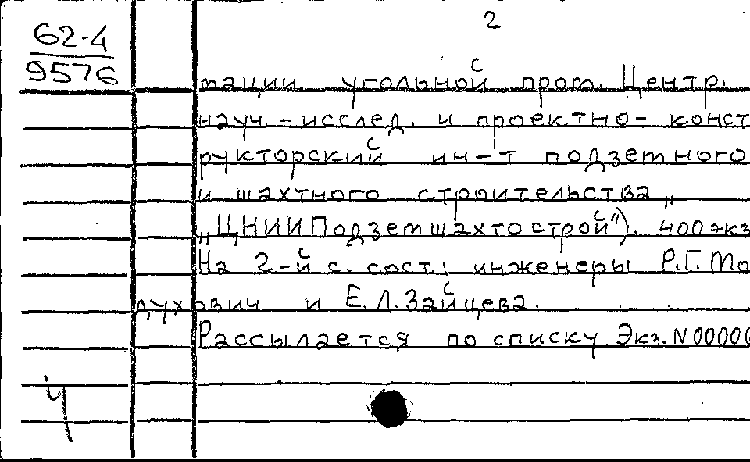 2
62-4
9576
тации угольной пром. Центр.
науч.-исслед. и проектно-конст
рукторский ин-т подземного
и шахтного строительства „
„ЦНИИПодземшахтострой“). 400 экз
На 2-й с. сост.: инженеры Р.Г. Мо
духович и Е.Л. Зайцева.
Рассылается по списку Экз. N 00000
Ч